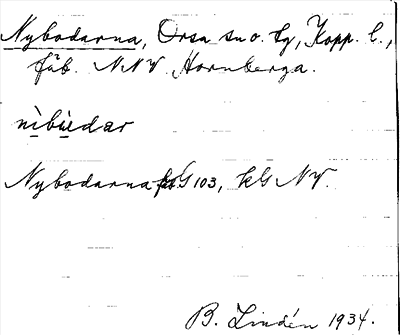 Nybodarna, Orsa sn o. tg, Kopp. l.,
fäb. NNV Hornberga.
nìbùdar
Nybodarna G 103, kG NV.
B. Lindén 1934.